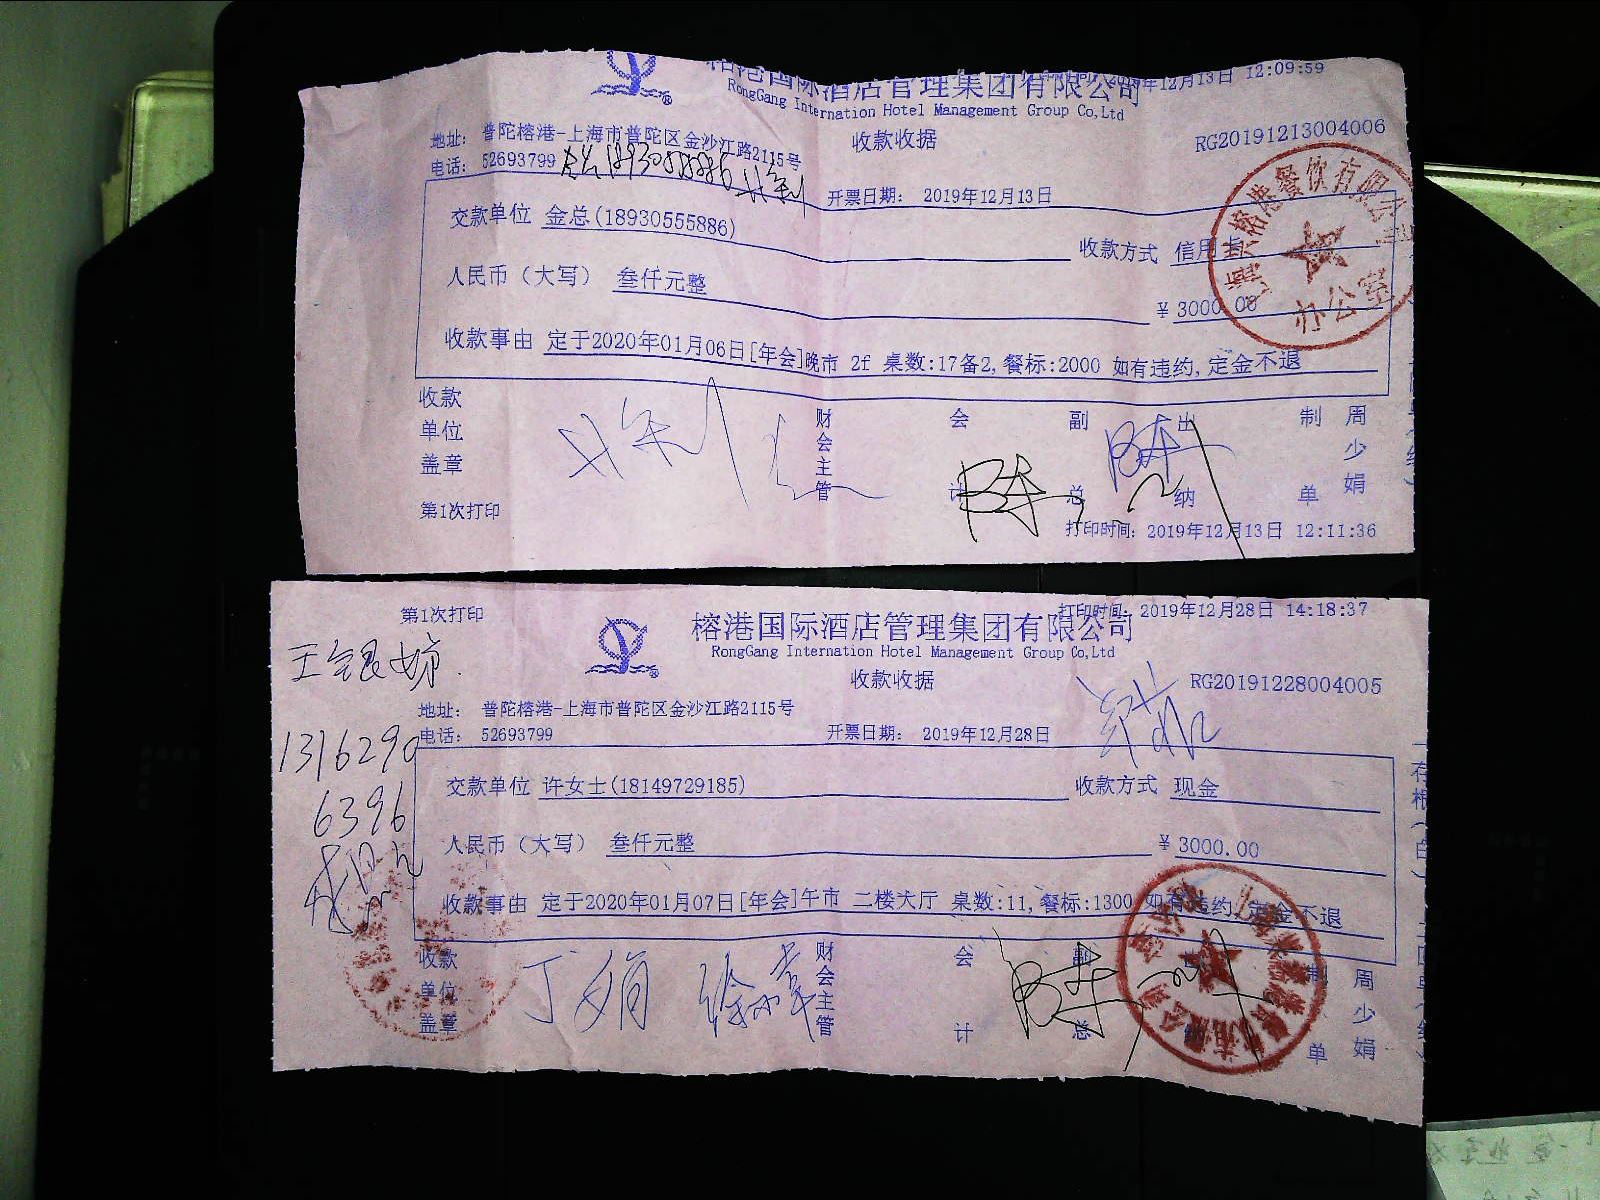 榕港国际酒店管理集团有限公司
2019年12月13日 12:09:59
RongGang Internation Hotel Management Group Co,Ltd
收款收据
RG20191213004006
地址： 普陀榕港-上海市普陀区金沙江路2115号
电话： 52693799
18930555886
开票日期： 2019年12月13日
交款单位 金总(18930555886)
收款方式 信用卡
人民币（大写） 叁仟元整
￥3000.00
收款事由 定于2020年01月06日[年会]晚市 2f 桌数:17备2,餐标:2000 如有违约,定金不退
收款单位盖章
财会主管
会计
副总
出纳
制单
周少娟
办公室
第1次打印
打印时间：2019年12月13日 12:11:36
第1次打印
打印时间：2019年12月28日 14:18:37
榕港国际酒店管理集团有限公司
RongGang Internation Hotel Management Group Co,Ltd
收款收据
RG20191228004005
王银娣
地址： 普陀榕港-上海市普陀区金沙江路2115号
电话： 52693799
开票日期： 2019年12月28日
1316290
6396
交款单位 许女士(18149729185)
收款方式 现金
人民币（大写） 叁仟元整
￥3000.00
收款事由 定于2020年01月07日[年会]午市 二楼大厅 桌数:11,餐标:1300 如有违约,定金不退
收款单位盖章
丁娟
财会主管
会计
副总
制单
周少娟